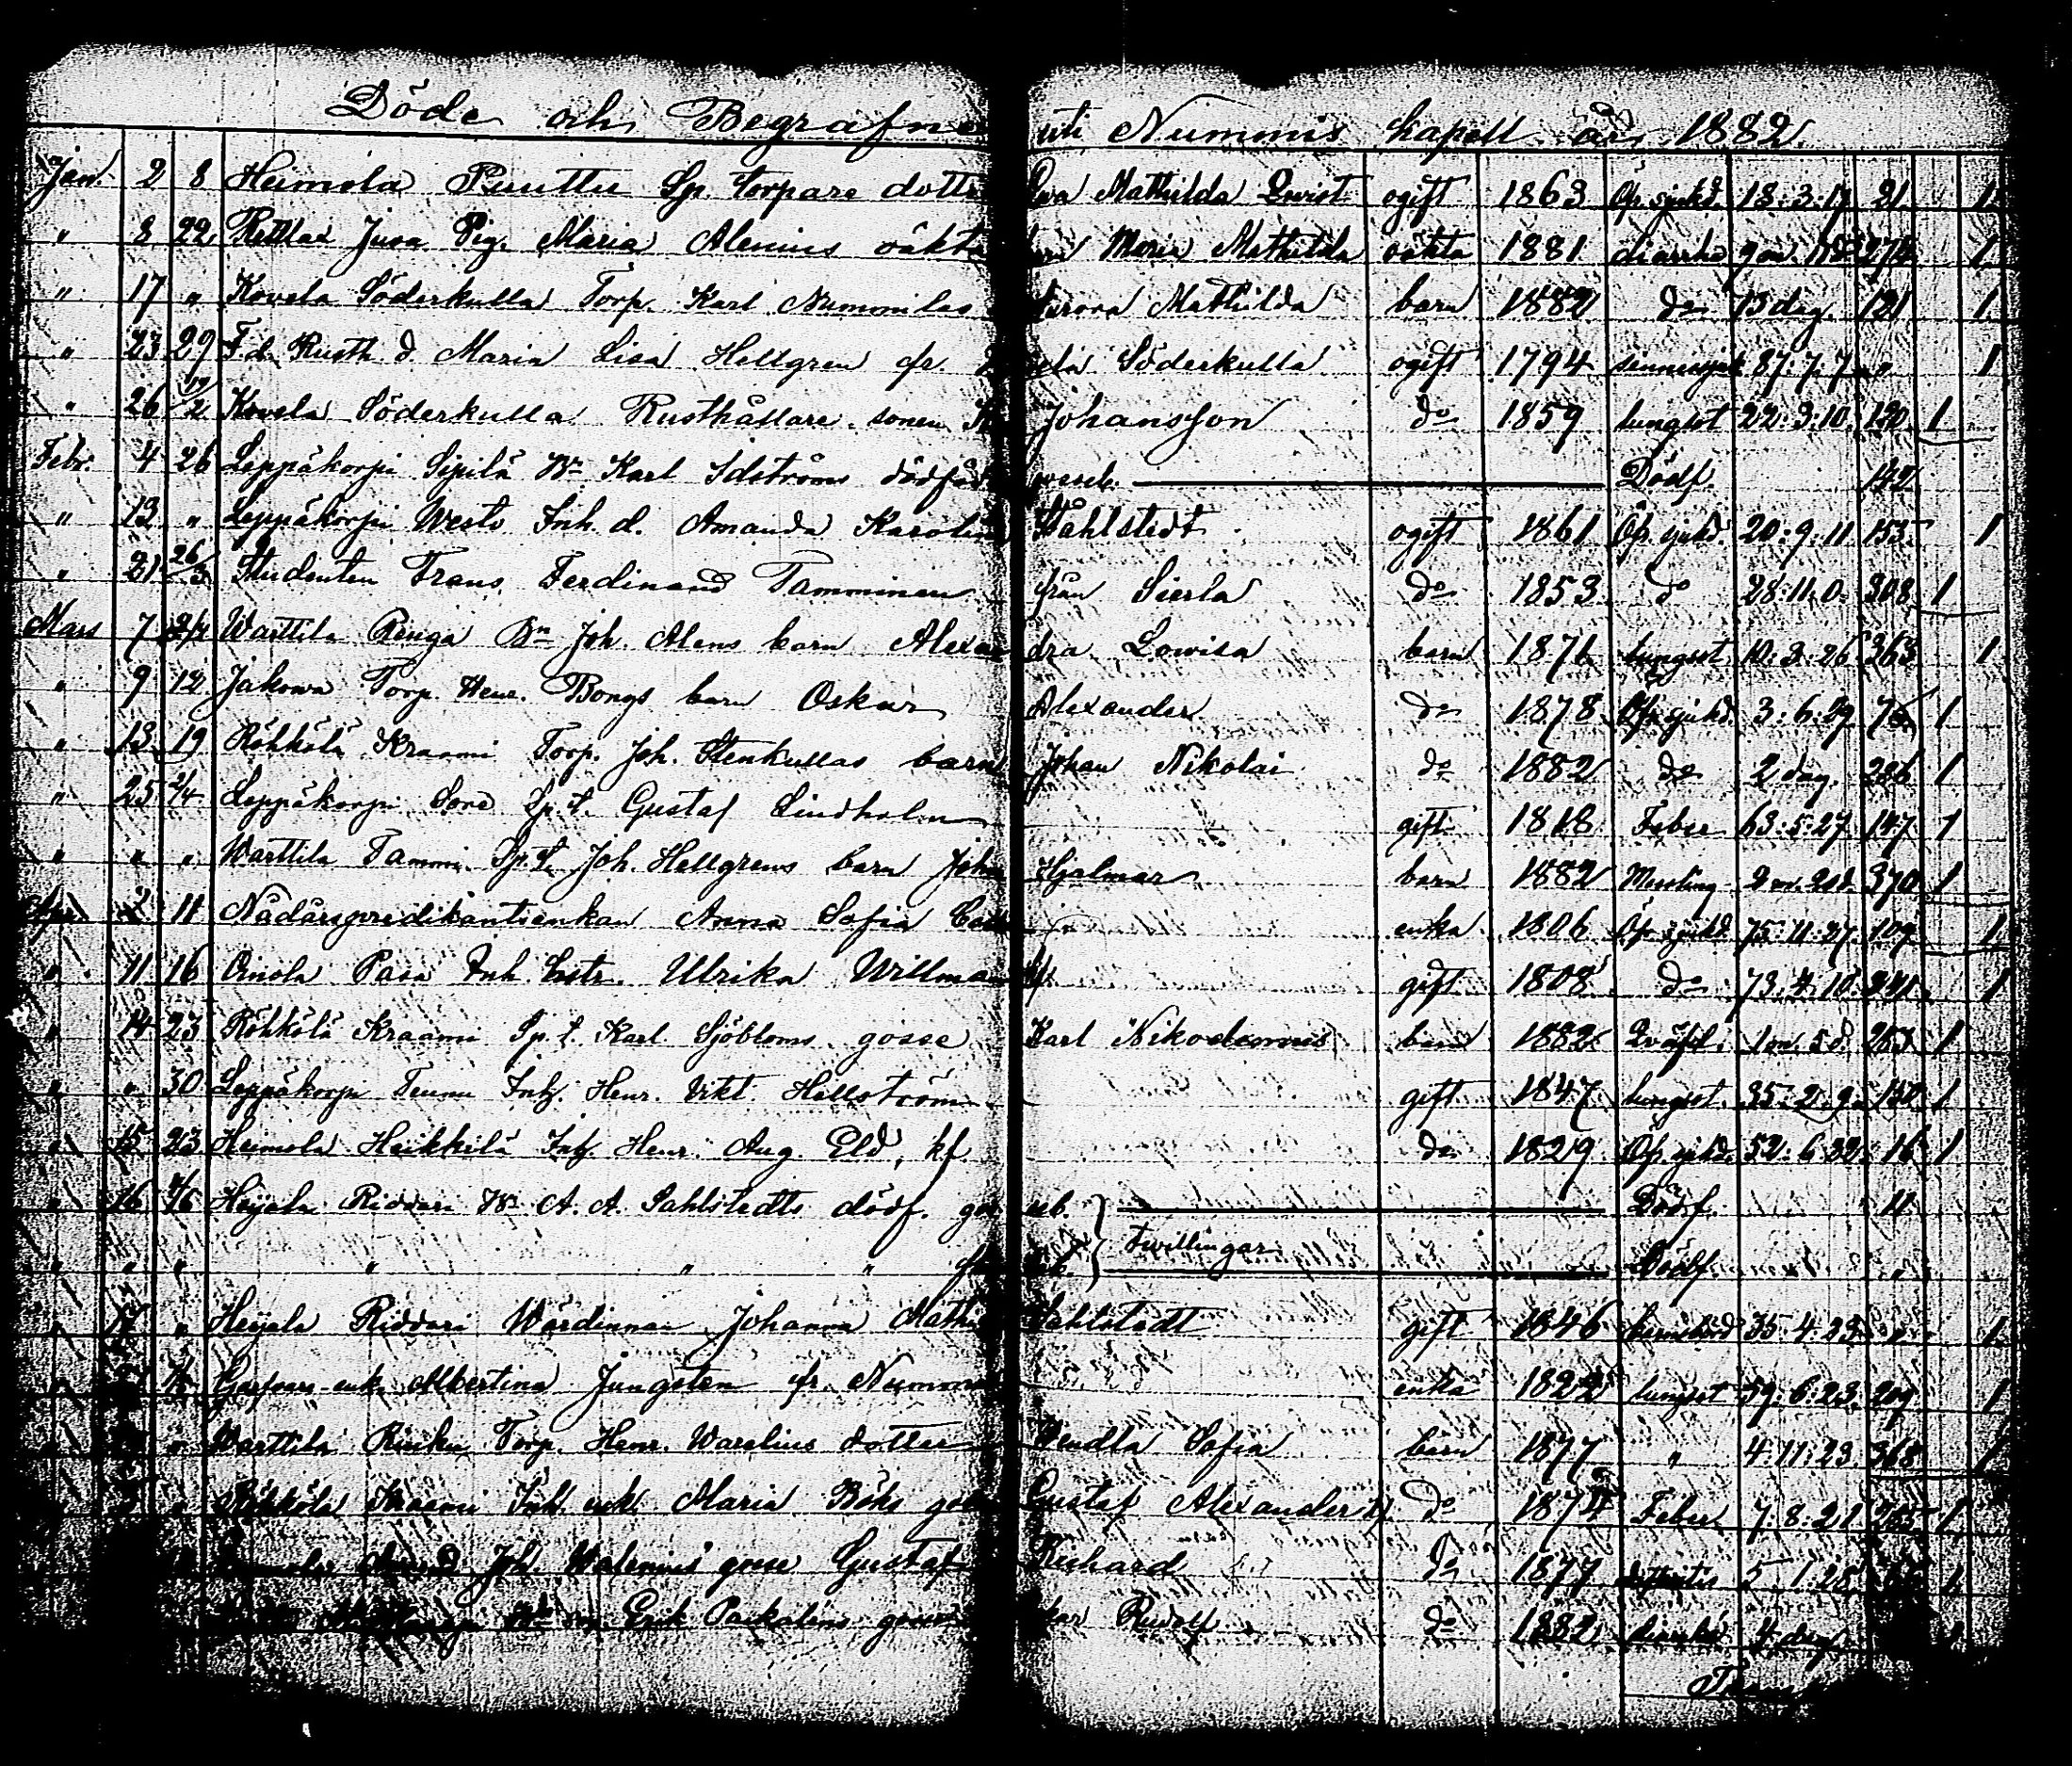 Döde och Begrafne uti Nummis kapell år 1882.
Jan. 2 8 Heimola Puuttu Sp. torpare dottr Eva Mathilda Qvist ogift 1863 Öfr. sjukd. 18:3:17 21 1
" 8 22 Rettlax Jusa Pig. Maria Alenius oäkta barn Maria Mathilda oäkta 1881 diarrhe 9 m. 274 1
" 17 " Kovela Söderkulla Torp. Karl Nummilas Aurora Mathilda barn 1882 do 13 dag. 121 1
" 23 29 F.d. Rusth. d. Maria Lisa Hellgren fr. Söderkulla ogift 1794 sinnessjuk 87:7:7 " 1
" 26 12/2 Kovela Söderkulla Rusthållare sonen Johansson do 1859 lungsot 22:3:10 120 1
Febr. 4 26 Leppäkorpi Sipilä Bn Karl Idströms dödfödt Dödf. 142
" 12 " Leppäkorpi Westo Inh. d. Amanda Karolina Ståhlstedt ogift 1861 Öfr. sjukd. 20:9:11 153 1
" 21 26/3 Studenten Frans Ferdinand Tamminen från Sierla do 1853 do 28:11:0 308 1
Mars 7 Warttila Renga Bn Joh. Alens barn Alexandra Lowisa barn 1871 lungsot 10:3:26 363 1
" 9 12 Jakowa Torp. Henr. Bongs barn Oskar Alexander do 1878 Öfr. sjukd. 3:6:29 76 1
" 13 19 Röhkölä Kraami Torp. Joh. Stenkullas barn Johan Nikolai do 1882 do 2 dag. 286 1
" 25 2/4 Leppäkorpi Sore Sp. t. Gustaf Lindholm gift 1818 Feber 63:5:27 147 1
" " " Warttila Tammi Sp. t. Joh. Hellgrens barn Johan Hjalmar barn 1882 Messling 2 m. 20 d. 370 1
Apr. 2 11 Nådårspredikantsenkan Anna Sofia enka 1806 Öfr. sjukd. 75:11:27 109 1
" 11 16 Oinola Pasa Inh. hstr. Ulrika Willman gift 1808 do 73:4:10 241 1
" 14 23 Röhkölä Kraami Sp. t. Karl Sjöbloms gosse Karl Nikodemus barn 1882 Qväfd. 1 m. 5 d. 283 1
" " 30 Leppäkorpi Teunu Inh. Henr. Vikt. Hellström gift 1847 lungsot 35:2:9 150 1
" 15 23 Heimola Heikkilä Inh. Henr. Aug. Eld, kf. do 1829 Öfr. sjukd. 52:6:22 16 1
" 16 Heijala Riddari Bn A. A. Sahlstedts dödf. Dödf. 11
" " " " " " Twillingar Dödf. "
" 17 " Heijala Riddari Wärdinnan Johanna Mathi Sahlstedt gift 1846 barnsbörd 35:4:23 " 1
enk. Albertina Jungsten fr. Nummis enka 1822 lungsot 59:6:23 209 1
" Warttila Rinku Torp. Henr. Warelius dotter Wendla Sofia barn 1877 " 4:11:23 368 1
" Röhkölä Kraami Inh. enk. Maria Böks gosse Gustaf Alexander do 1874 Feber 7:8:21 265 1
Joh. Walenius gosse Gustaf Richard do 1877 5:1:28 1
Erik Paikolins gosse Rudolf do 1882 diarrhé 4 dag. 1